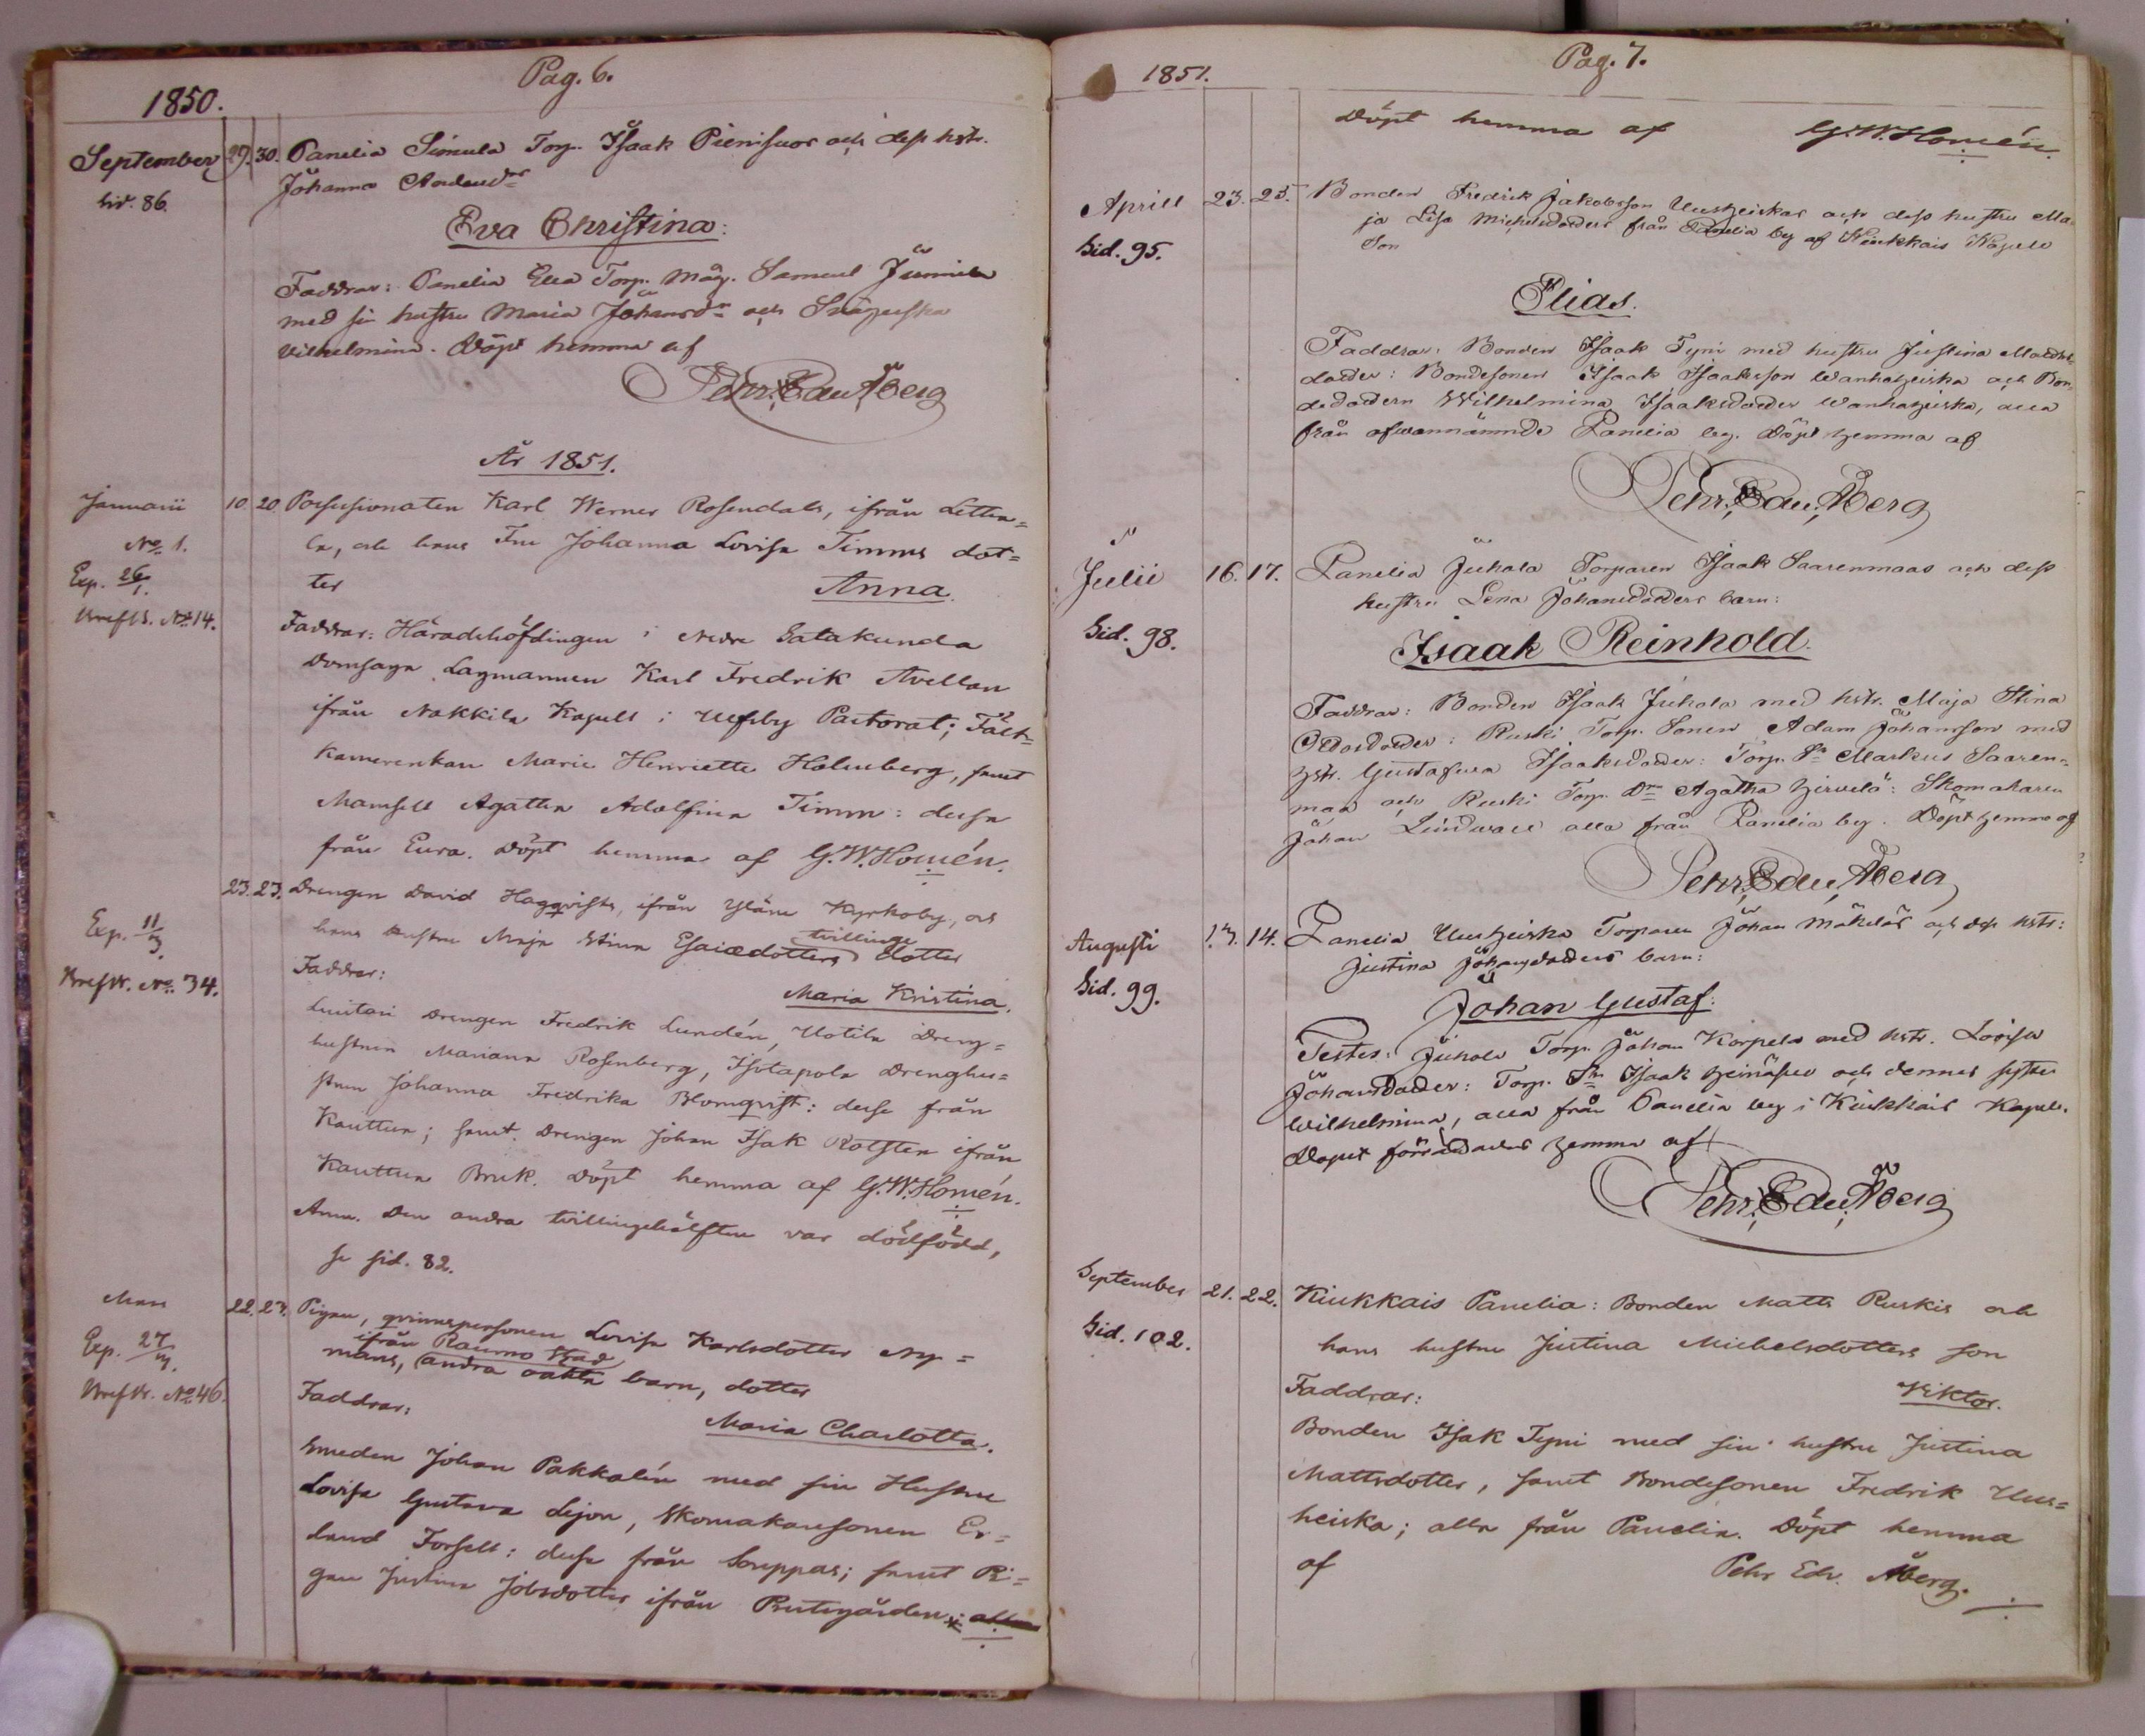 Pag. 6.
1850.
September 29. 30. Panelia Simula Torp. Isaak Pienisuos och dess hstr.
Sid. 86. Johanna
Eva Christina:
Faddrar: Panelia Torp. Måg. Samuel Junnila
med sin hustru Maria Johansdr och
Vilhelmina. Döpt hemma af
Pehr Edv. Åberg
År 1851.
Januarii 10. 20. Possessionaten Karl Werner Rosendals, ifrån Letta=
No. 1. la, och hans Fru Johanna Lovisa Timms dot=
Exp. 26/1. ter Anna.
Brefk. No 14.
Faddrar: Häradshöfdingen i Nedre Satakunda
Domsaga Lagmannen Karl Fredrik Avellan
ifrån Nakkila Kapell i Ulfsby Pastorat; Fält=
kamrerskan Marie Henriette Holmberg, samt
Mamsell Agatha Adolfina Timm: dessa
från Eura. Döpt hemma af G. W. Homén.
23. 23. Drengen David Hagqvists, ifrån Yläne Kyrkoby, och
Exp. 11/3. hans hustru Maja Stina Esaiædotters tvillinge dotter
Brefk. No. 34. Faddrar:
Maria Kristina.
Luutari Drengen Fredrik Lundén, Uotila Dreng=
hustrun Mariana Rosenberg, Isotapola Drenghu=
strun Johanna Fredrika Blomqvist: dessa från
Kauttua; samt Drengen Johan Isak Rotsten ifrån
Kauttua Bruk. Döpt hemma af G. W. Homén.
Anm. Den andra tvillingehälften var dödfödd,
se sid. 82.
Mars 22. 23. Pigan, qvinnspersonen Lovisa Karlsdotter Ny=
Exp. 27/3. ifrån Raumo Stad
mans, andra oäkta barn, dotter
Brefk. No 46.
Faddrar:
Maria Charlotta.
Smeden Johan Pakkalén med sin Hustru
Lovisa Gustava Lejon, Skomakaresonen Er=
land Forsell: dessa från Souppas; samt Pi=
gan Justina Jobsdotter ifrån Prestgården:
1851.
Pag. 7.
Döpt hemma af G. W. Homén.
Aprill 23. 25. Bonden Fredrik Jakobsson Uusheiskas och dess hustru Ma=
Sid. 95. ja Lisa Michelsdotters från Panelia by af Kiukkais Kapell
Son
Elias.
Faddrar: Bonden Isaak Tyni med hustru Justina Matts=
dotter: Bondesonen Isaak Isaaksson Wanhaheiska och Bon=
dedottern Wilhelmina Isaaksdotter Wanhaheiska, alla
från ofwannämnde Panelia by. Döpt hemma af
Pehr Edv. Åberg
Julii 16. 17. Panelia Juhala Torparen Isaak Saarenmaas och dess
hustru Lena Johansdotters barn:
Sid. 98.
Isaak Reinhold.
Faddrar: Bonden Isaak Juhala med hstr. Maja Stina
Ruski Torp. Sonen Adam Johansson med
hstr. Gustafwa Isaaksdotter: Torp. Sn Markus Saaren=
maa och Ruski Torp. Dr Agatha Hirvelä: Skomakaren
Johan Lindwall alla från Panelia by. Döpt hemma af
Pehr Edv. Åberg
Augusti 13. 14. Panelia Uusheiska Torparen Johan Mäkeläs och dess hstr:
Justina Johansdotters barn:
Sid. 99.
Johan Gustaf:
Testes: Juhala Torp. Johan Korpela med hstr. Lovisa
Johansdotter: Torp. Sn Isaak Heinäsuo och dennes syster
Wilhelmina, alla från Panelia by i Kiukkais Kapell.
Döpt hemma af
Pehr Edv. Åberg
September 21. 22. Kiukkais Panelia: Bonden Matts Ruskis och
Sid. 102. hans hustru Justina Michelsdotters son
Faddrar: Viktor.
Bonden Isak Tyni med sin hustru Justina
Mattsdotter, samt Bondesonen Fredrik Uus=
heiska; alla från Panelia. Döpt hemma
af Pehr Edv. Åberg.